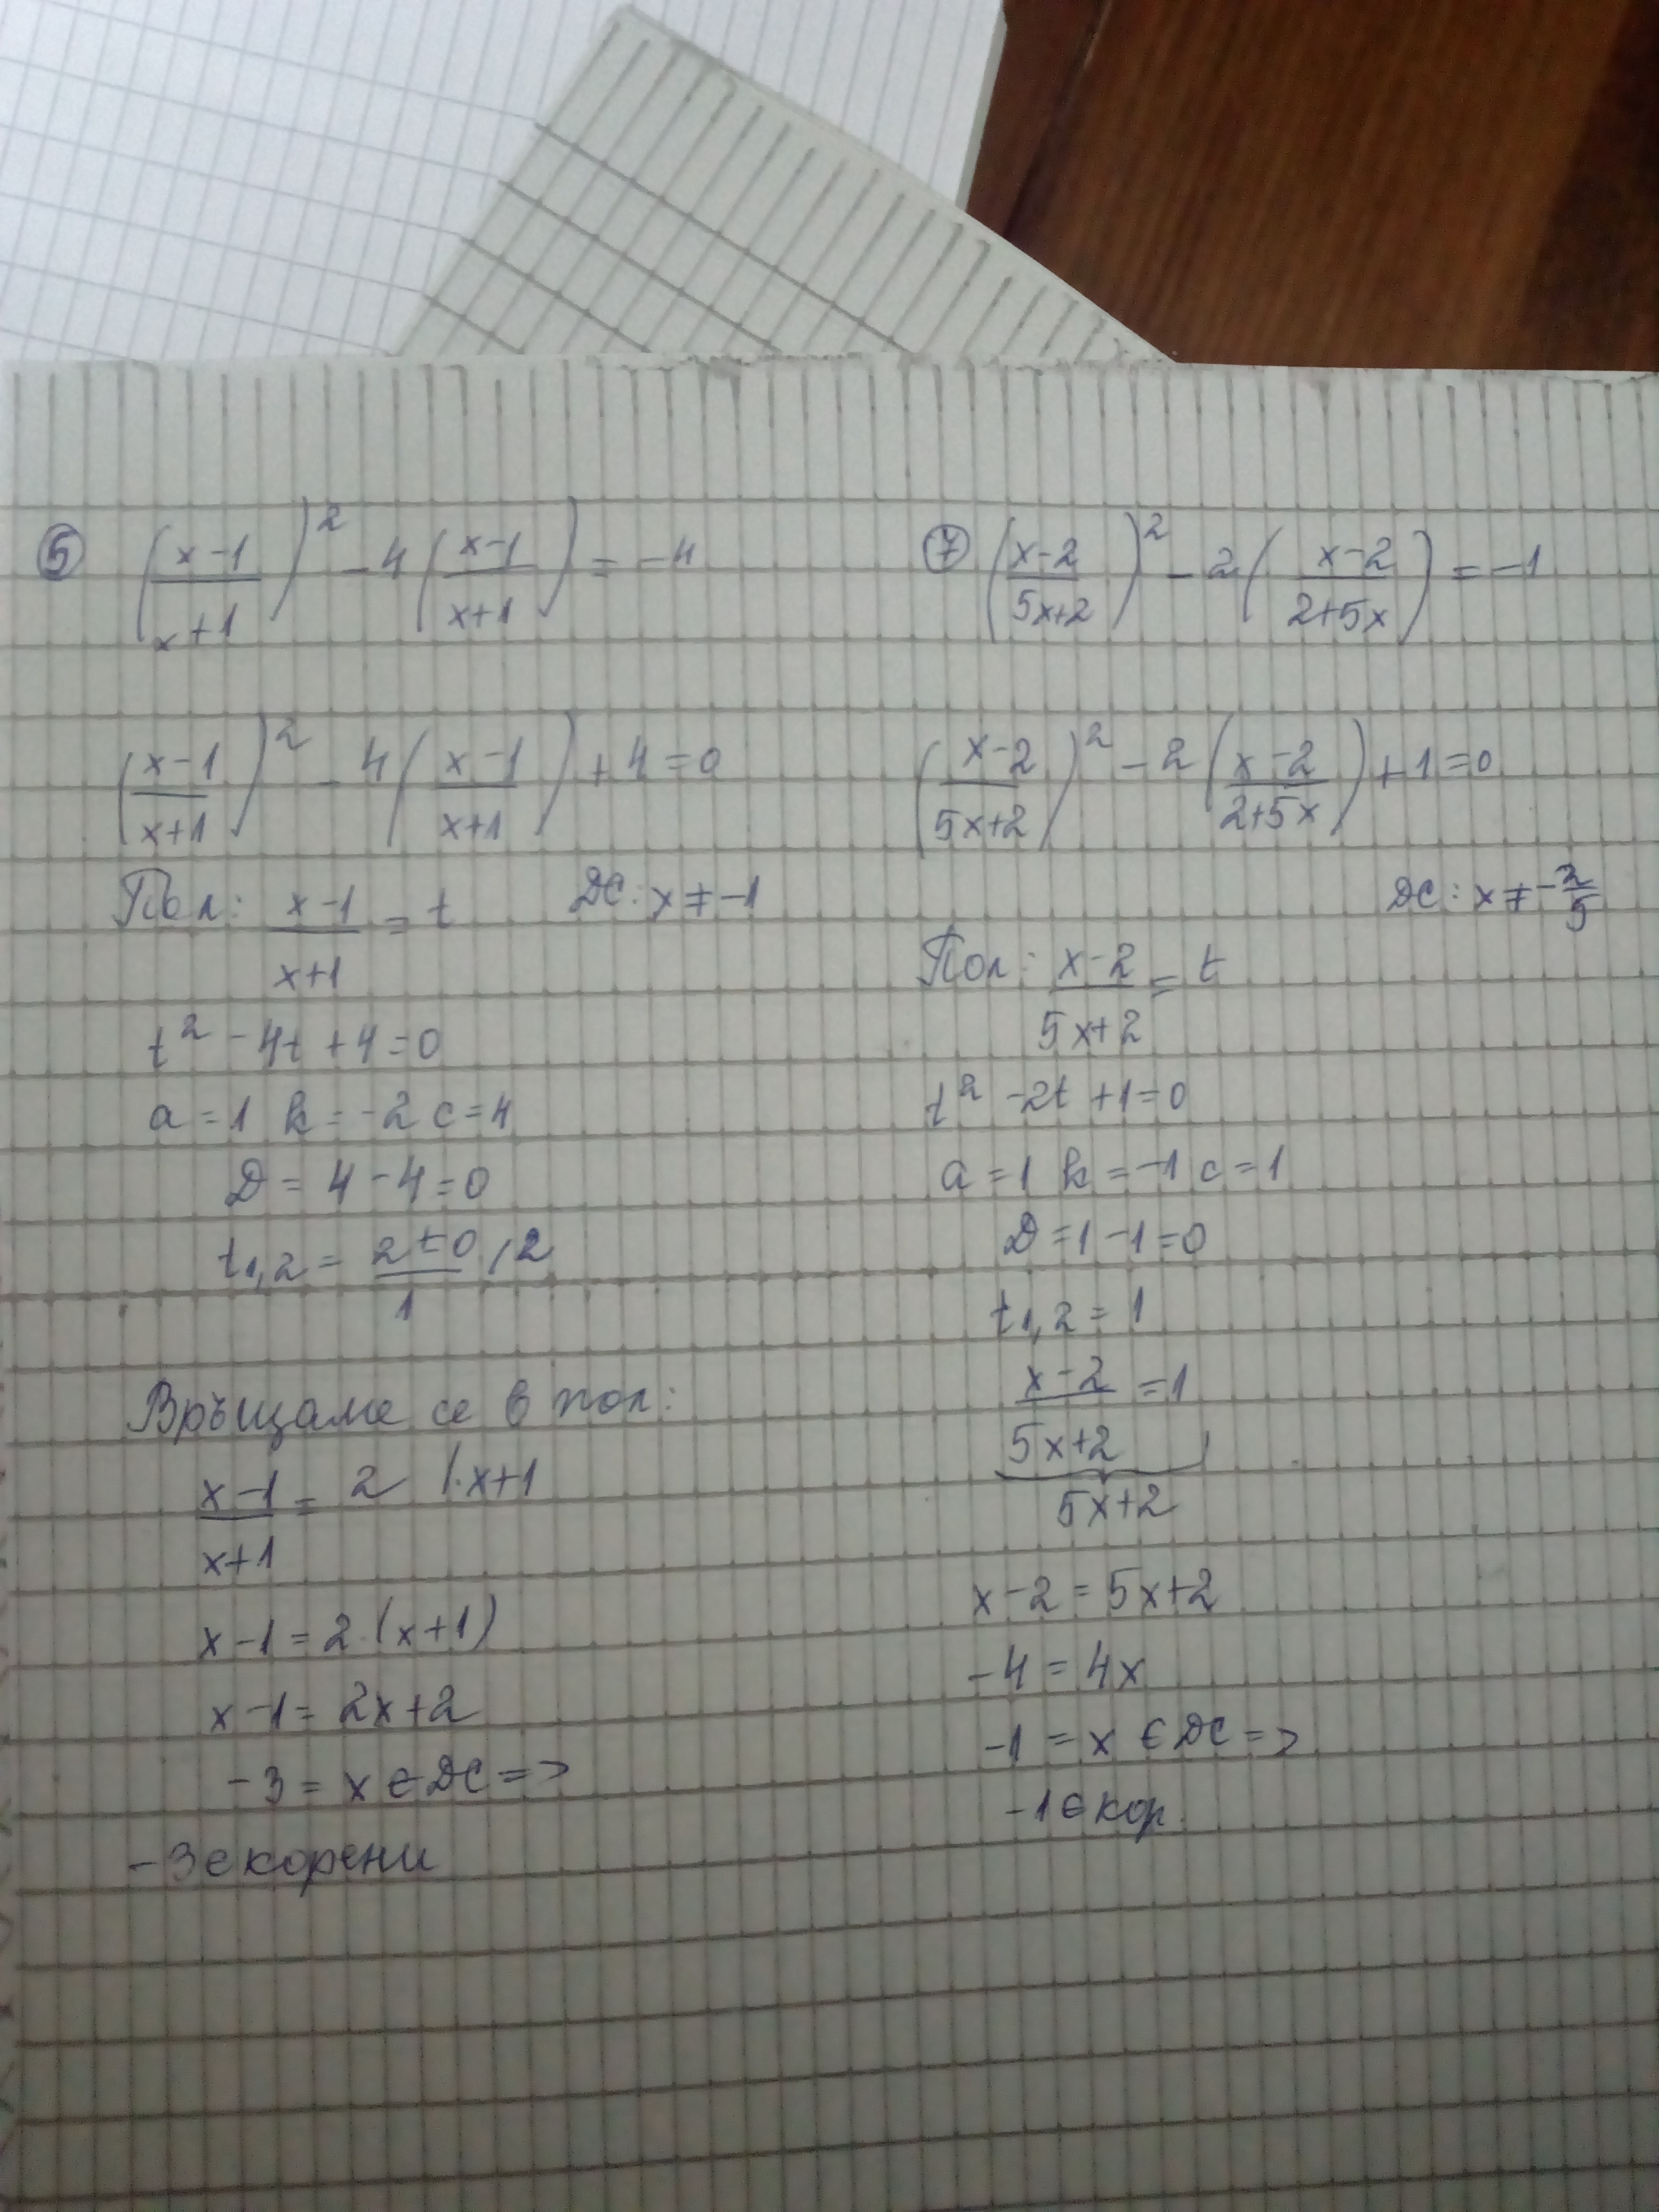 ⑤ ((x-1)/(x+1))² - 4((x-1)/(x+1)) = -4
((x-1)/(x+1))² - 4((x-1)/(x+1)) + 4 = 0
Пол: (x-1)/(x+1) = t ДС: x ≠ -1
t² - 4t + 4 = 0
a = 1 k = -2 c = 4
D = 4 - 4 = 0
t1,2 = (2 ± 0)/1, 2
Връщаме се в пол:
(x-1)/(x+1) = 2 /·x+1
x - 1 = 2·(x+1)
x - 1 = 2x + 2
-3 = x ∈ ДС =>
-3 е корени
⑦ ((x-2)/(5x+2))² - 2((x-2)/(2+5x)) = -1
((x-2)/(5x+2))² - 2((x-2)/(2+5x)) + 1 = 0
ДС: x ≠ -2/5
Пол: (x-2)/(5x+2) = t
t² - 2t + 1 = 0
a = 1 k = -1 c = 1
D = 1 - 1 = 0
t1,2 = 1
(x-2)/(5x+2) = 1
5x+2
x - 2 = 5x + 2
-4 = 4x
-1 = x ∈ ДС =>
-1 е кор.